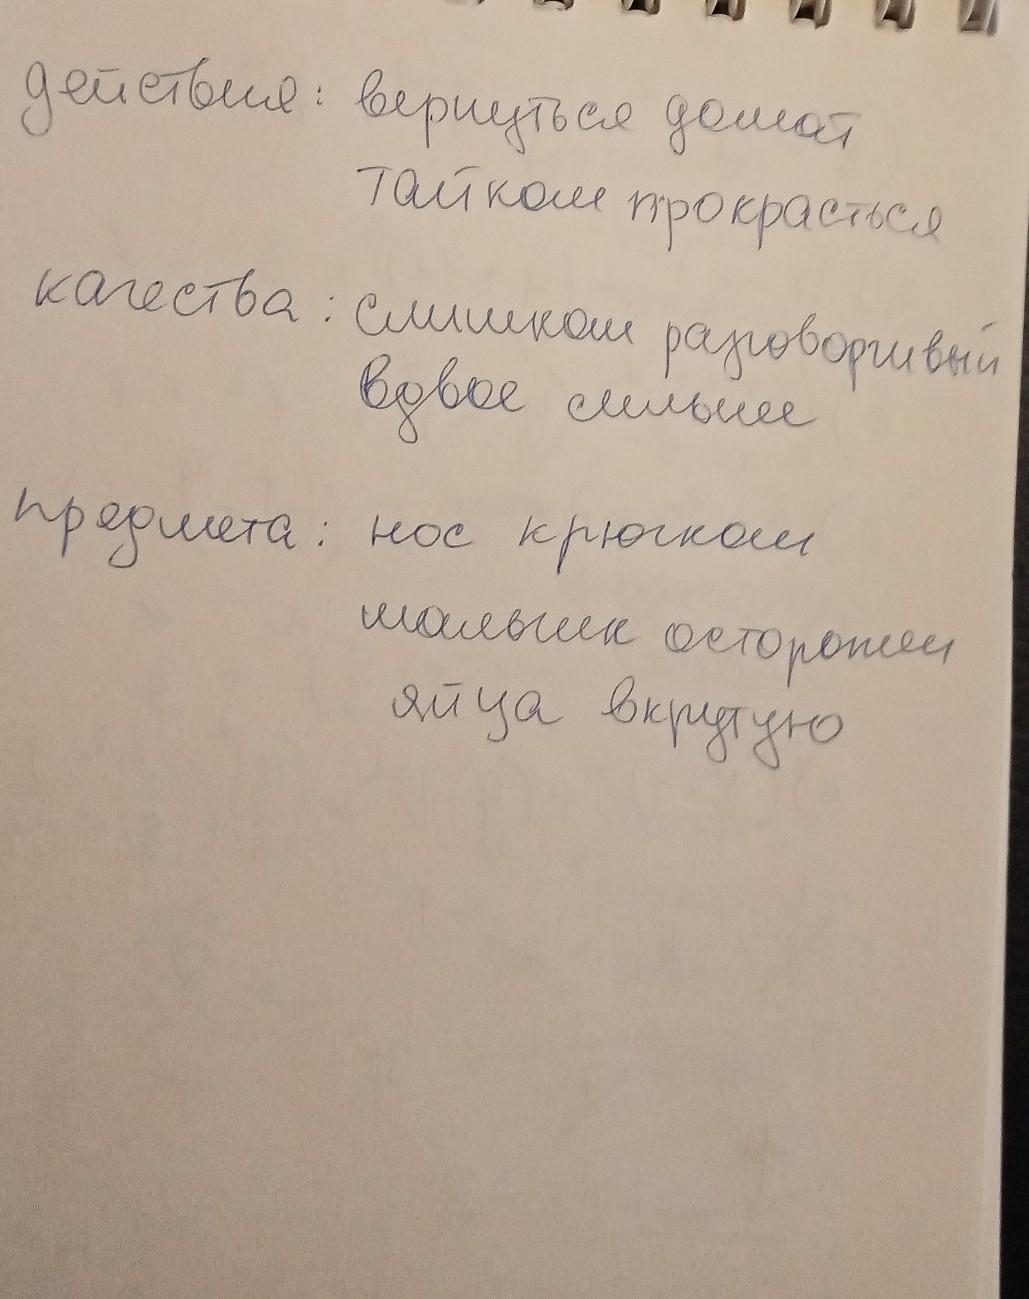 действия: вернуться домой
тайком прокрасться
качества: слишком разговорчивый
вдвое сильнее
предмета: нос крючком
малышик осторожен
яйца вкрутую